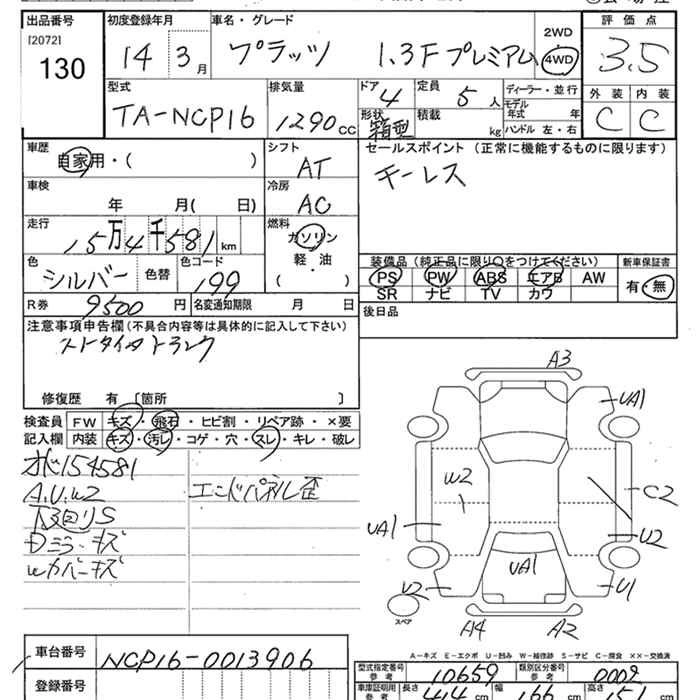 出品番号 初度登録年月 車名・グレード 評価点
[2072] 130 14 3月 プラッツ 1.3F プレミアム 2WD 4WD 3.5
型式 排気量 ドア 4 定員 5人 ディーラー・並行 外装 内装
TA-NCP16 1290cc 形状 箱型 積載 kg モデル年式 年 C C
ハンドル 左・右
車歴 自家用・( ) シフト AT セールスポイント (正常に機能するものに限ります)
キーレス
車検 年 月( 日) 冷房 AC
走行 15万4千581km 燃料 ガソリン 軽油 ・( )
装備品(純正品に限り○をつけてください) 新車保証書
色 シルバー 色替 色コード 199 PS PW ABS エアB AW 有・無
SR ナビ TV カワ
R券 9500円 名変通知期限 月 日 後日品
注意事項申告欄(不具合内容等は具体的に記入して下さい)
修復歴 有 〔箇所 〕
検査員 FW キズ・飛石・ヒビ割・リペア跡・×要
記入欄 内装 キズ・汚レ・コゲ・穴・スレ・キレ・破レ
154581
A.U.W2 エンドパネル歪
下回りS
Dミラーキズ
Wカバーキズ
A3
UA1
W2
C2
UA1
U2
UA1
U2
U1
スペア
A4 A2
A-キズ E-エクボ U-凹み W-補修跡 S-サビ C-腐食 XX-交換済
車台番号 NCP16-0013906
型式指定番号 参考 10659 類別区分番号 参考 0002
登録番号
車庫証明用 参考 長さ 414cm 幅 166cm 高さ 151cm